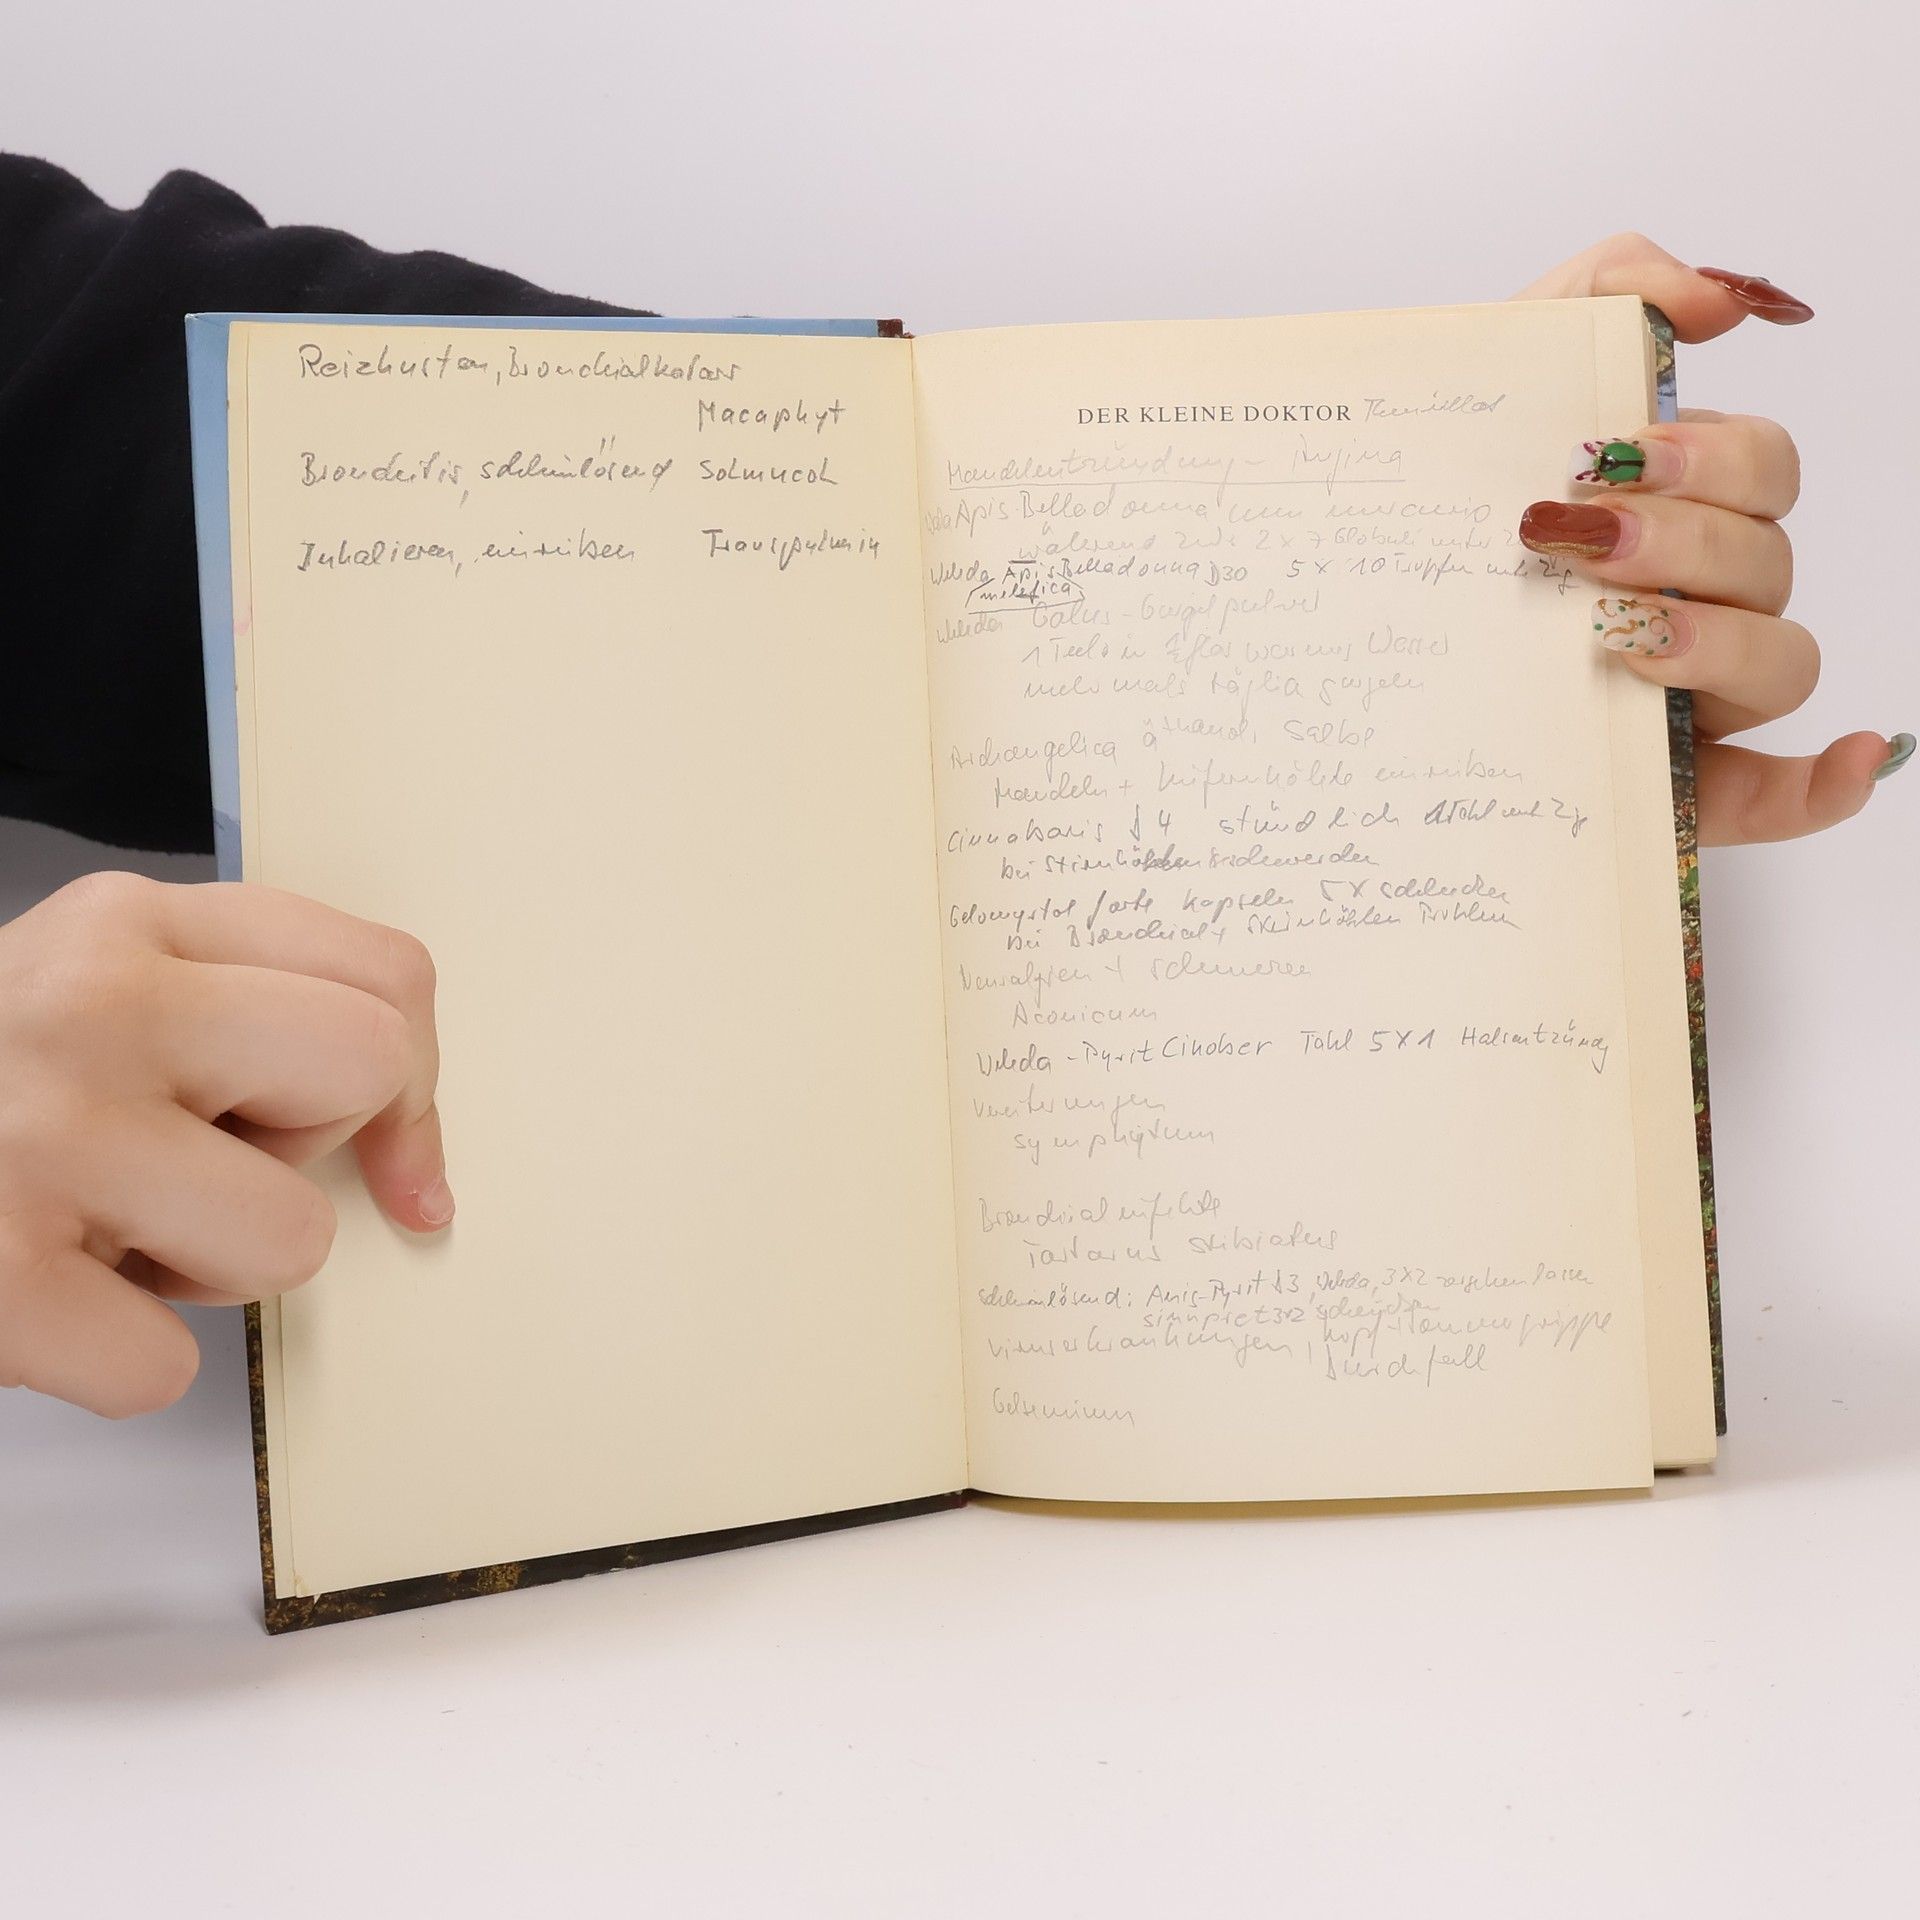 Reizhusten, Bronchialkatarr
Macaphyt
Bronchitis, schleimlösend Solmucol
Inhalieren, einreiben Transpulmin
DER KLEINE DOKTOR
Mandelentzündung - Angina
Apis Belladonna cum mercurio
während 2 x 7 Globuli unter
Weleda Apis Belladonna D30 5 x 10 Tropfen unter Zg
(mellifica)
Weleda Gurgelpulver
1 Teel. in Glas warmes Wasser
mehrmals täglich gurgeln
Archangelica äthanol. Salbe
Mandeln + einreiben
Cinnabaris D4 stündlich 1 Tabl unt Zg
bei Stirnhöhlenbeschwerden
Gelomyrtol forte Kapseln 5x schlucken
bei Bronchial + Stirnhöhlen Problem
Neuralgien + schmerzen
Aconitum
Weleda - Pyrit Cinober Tabl 5x1 Halsentzündg
Vereiterungen
Symphytum
Bronchialinfekte
Tartarus stibiatus
schleimlösend: Anis-Pyrit D3, Weleda, 3x2 zergehen lassen
sinupret 3x2
Viruserkrankungen, Kopf + Sommergrippe
Durchfall
Gelsemium